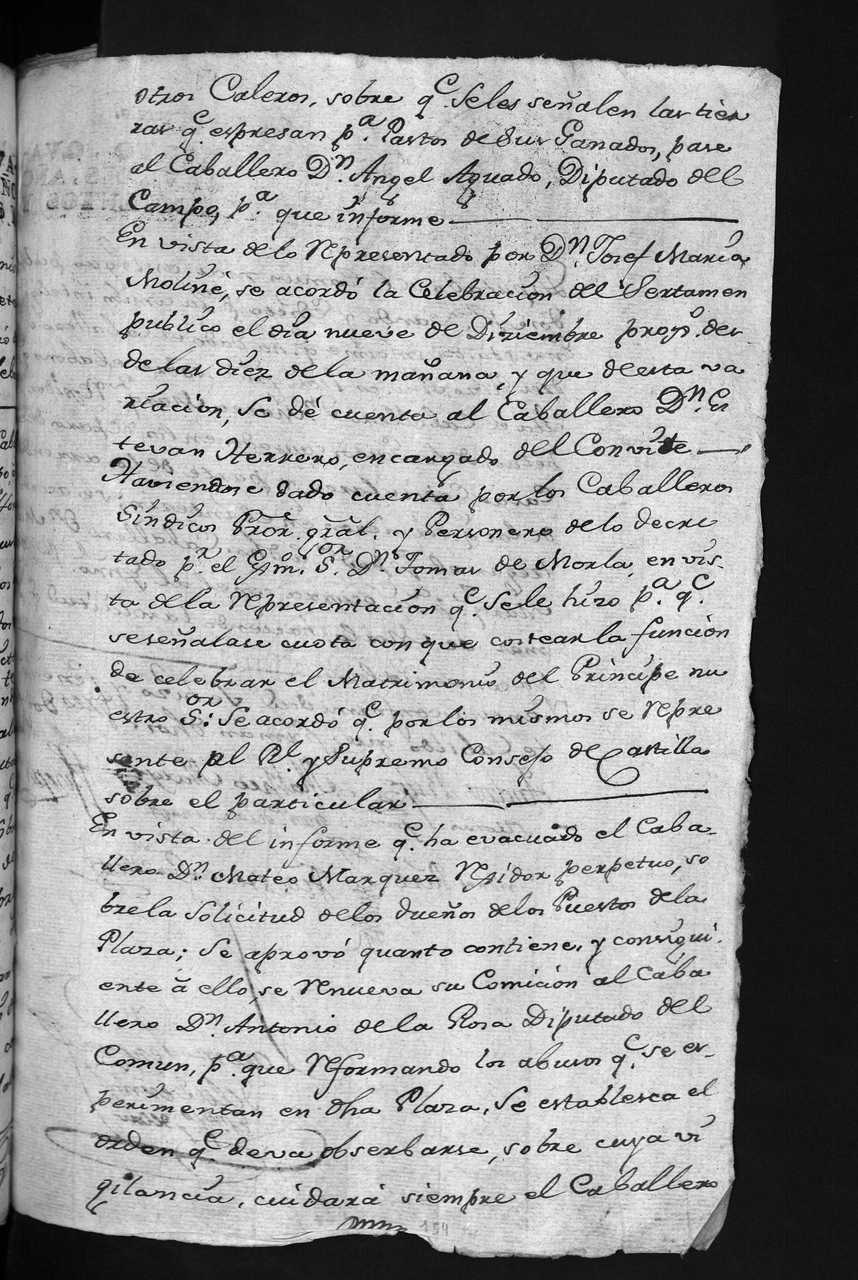 otros Caleros, sobre q.e seles señalen las tier
ras q.e espresan p.a Pastos de sus Ganados, pase
al Caballero D.n Angel Aguado, Diputado del
Campo, p.a que informe
En vista delo Representado por D.n Josef Maria
Moliñé, se acordó la Celebracion del Sertamen
publico el dia nueve de Diziembre proxº. des
de las diez dela mañana, y que desta va
riacion, se dé cuenta al Caballero D.n Es
tevan Herrero, encargado del Convite
Haviendose dado cuenta por los Caballeros
Sindicos Pror. gral. y Personero delo decre
tado p.r el Exmo. S.or D.n Tomas de Morla, en vis-
ta dela Representacion q.e sele hizo p.a q.e
seseñalase cuota con que costear la funcion
de celebrar el Matrimonio del Principe nu
estro S.or Se acordó q.e por los mismos se Repre
sente al Rl. y Supremo Consejo de Castilla
sobre el particular
En vista del informe q.e ha evacuado el Caba-
llero D.n Mateo Marquez Rexidor perpetuo, so
bre la solicitud delos dueños delos Puestos dela
Plaza; Se aprovó quanto contiene, y consigui-
ente á ello se Renueva su Comicion al Caba
llero D.n Antonio dela Rosa Diputado del
Comun, p.a que Reformando los abusos q.e se es-
perimentan en dha Plaza, Se establesca el
orden q.e deva obserbarse, sobre cuya vi
gilancia, cuidará siempre el Caballero
154